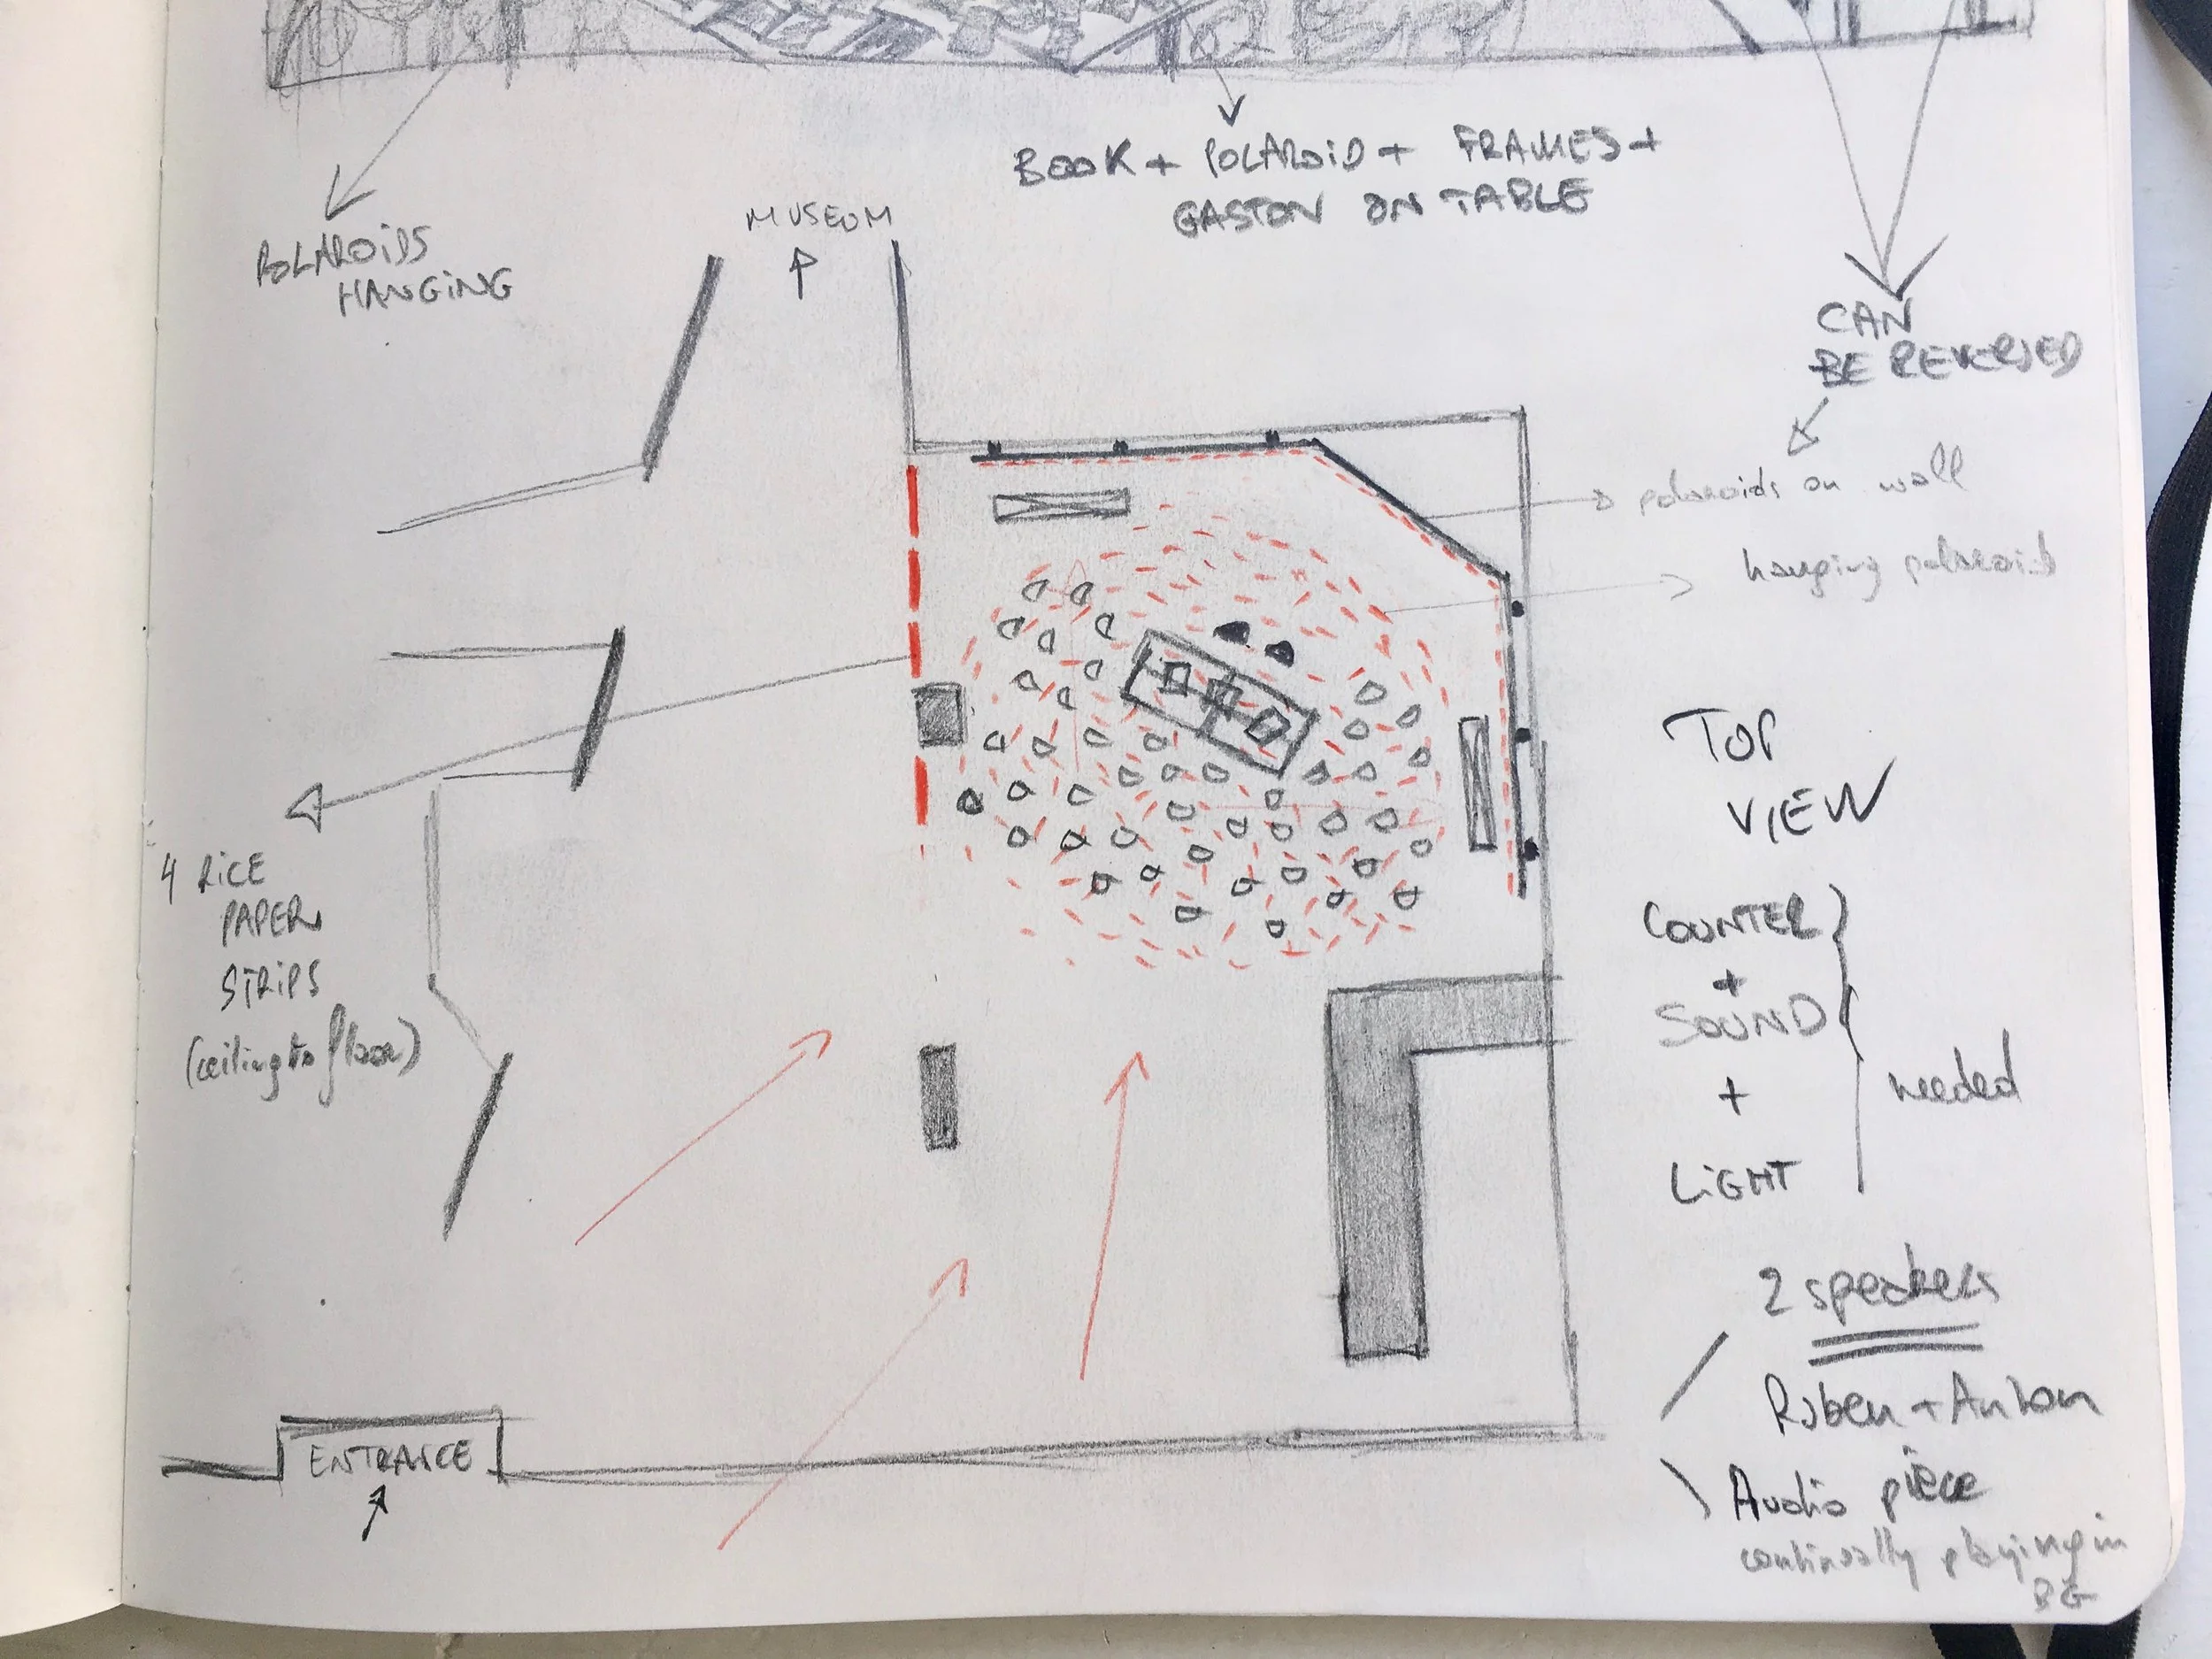 BOOK + POLAROID + FRAMES +
GASTON ON TABLE
POLAROIDS
HANGING
MUSEUM
CAN
BE REVERSED
polaroids on wall
hanging polaroids
TOP
VIEW
4 RICE
PAPER
STRIPS
(ceiling to floor)
COUNTER
+
SOUND
+
LIGHT
needed
2 speakers
Ruben + Anton
Audio piece
continually playing in
BG
ENTRANCE